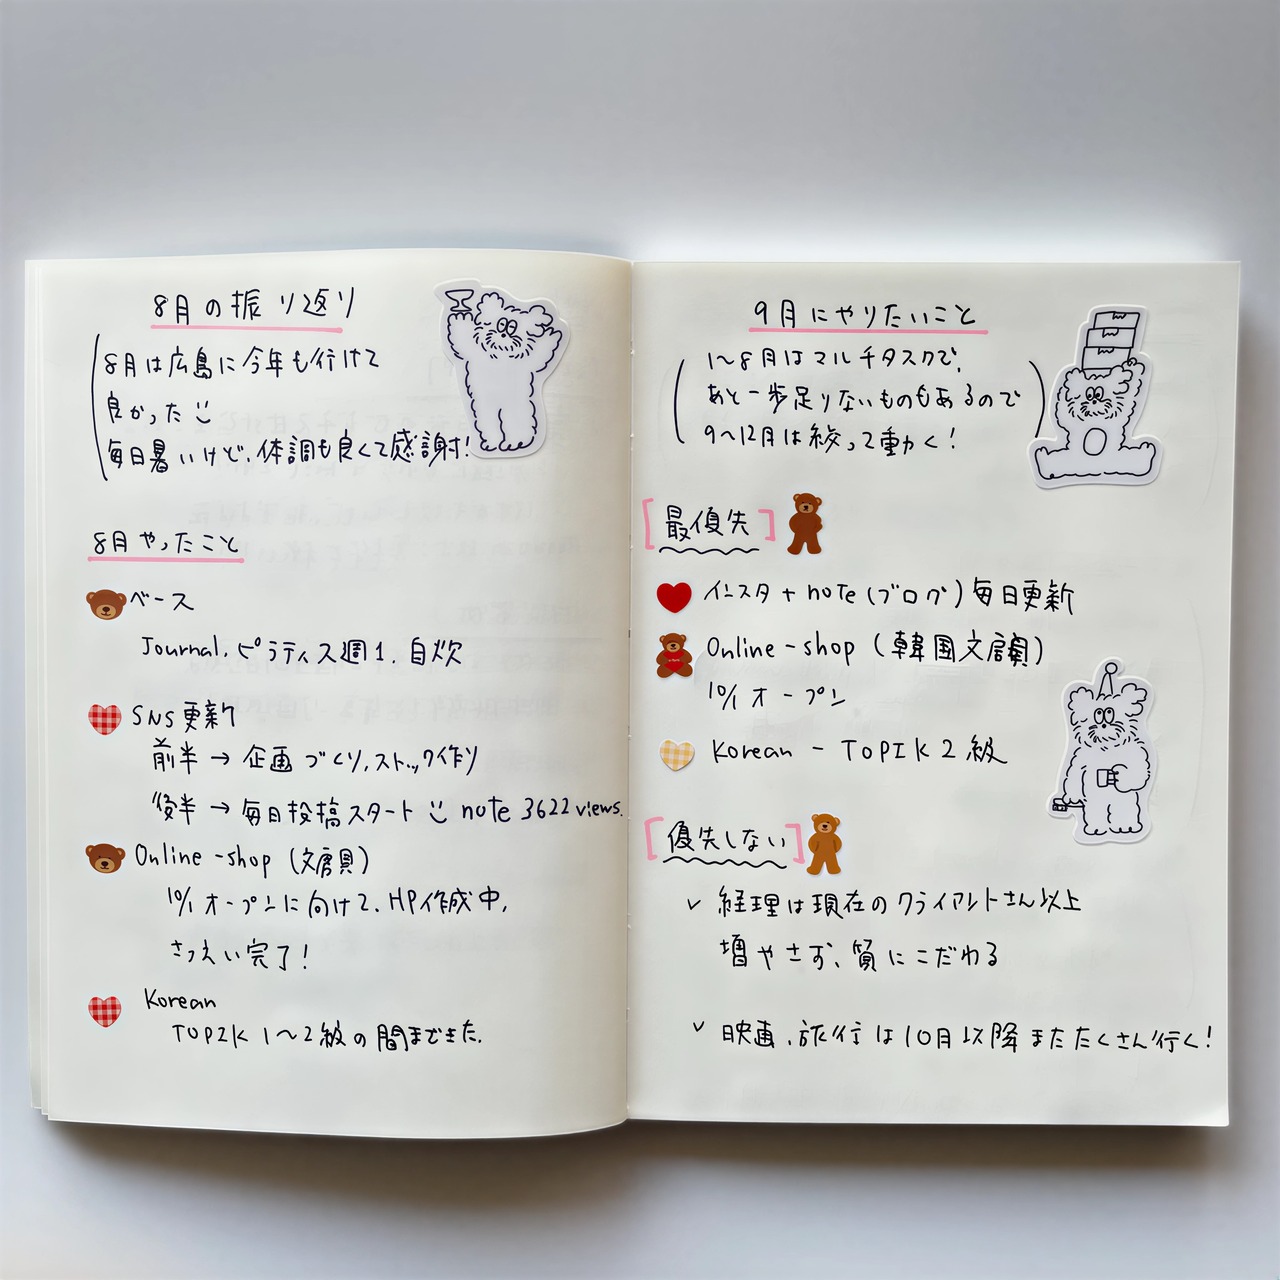 8月の振り返り
8月は広島に今年も行けて
良かった
毎日暑いけど、体調も良くて感謝!
8月やったこと
ベース
Journal, ピラティス週1, 自炊
SNS更新
前半→企画づくり,ストック作り
後半→毎日投稿スタート note 3622 views.
Online-shop (文房具)
10/1 オープンに向けて、HP作成中,
さつえい完了!
Korean
TOPIK 1〜2級の間まできた.
9月にやりたいこと
(1〜8月はマルチタスクで,
あと一歩足りないものもあるので
9〜12月は絞って動く!)
[最優先]
インスタ+note(ブログ)毎日更新
Online-shop (韓国文房具)
10/1 オープン
Korean - TOPIK 2級
[優先しない]
✓ 経理は現在のクライアントさん以上
増やさず、質にこだわる
✓ 映画、旅行は10月以降またたくさん行く!